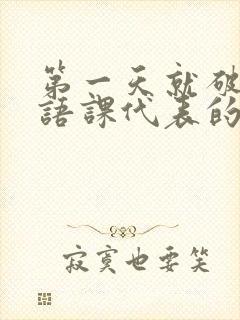 第一天就破
語課代表的
寂寞也要笑